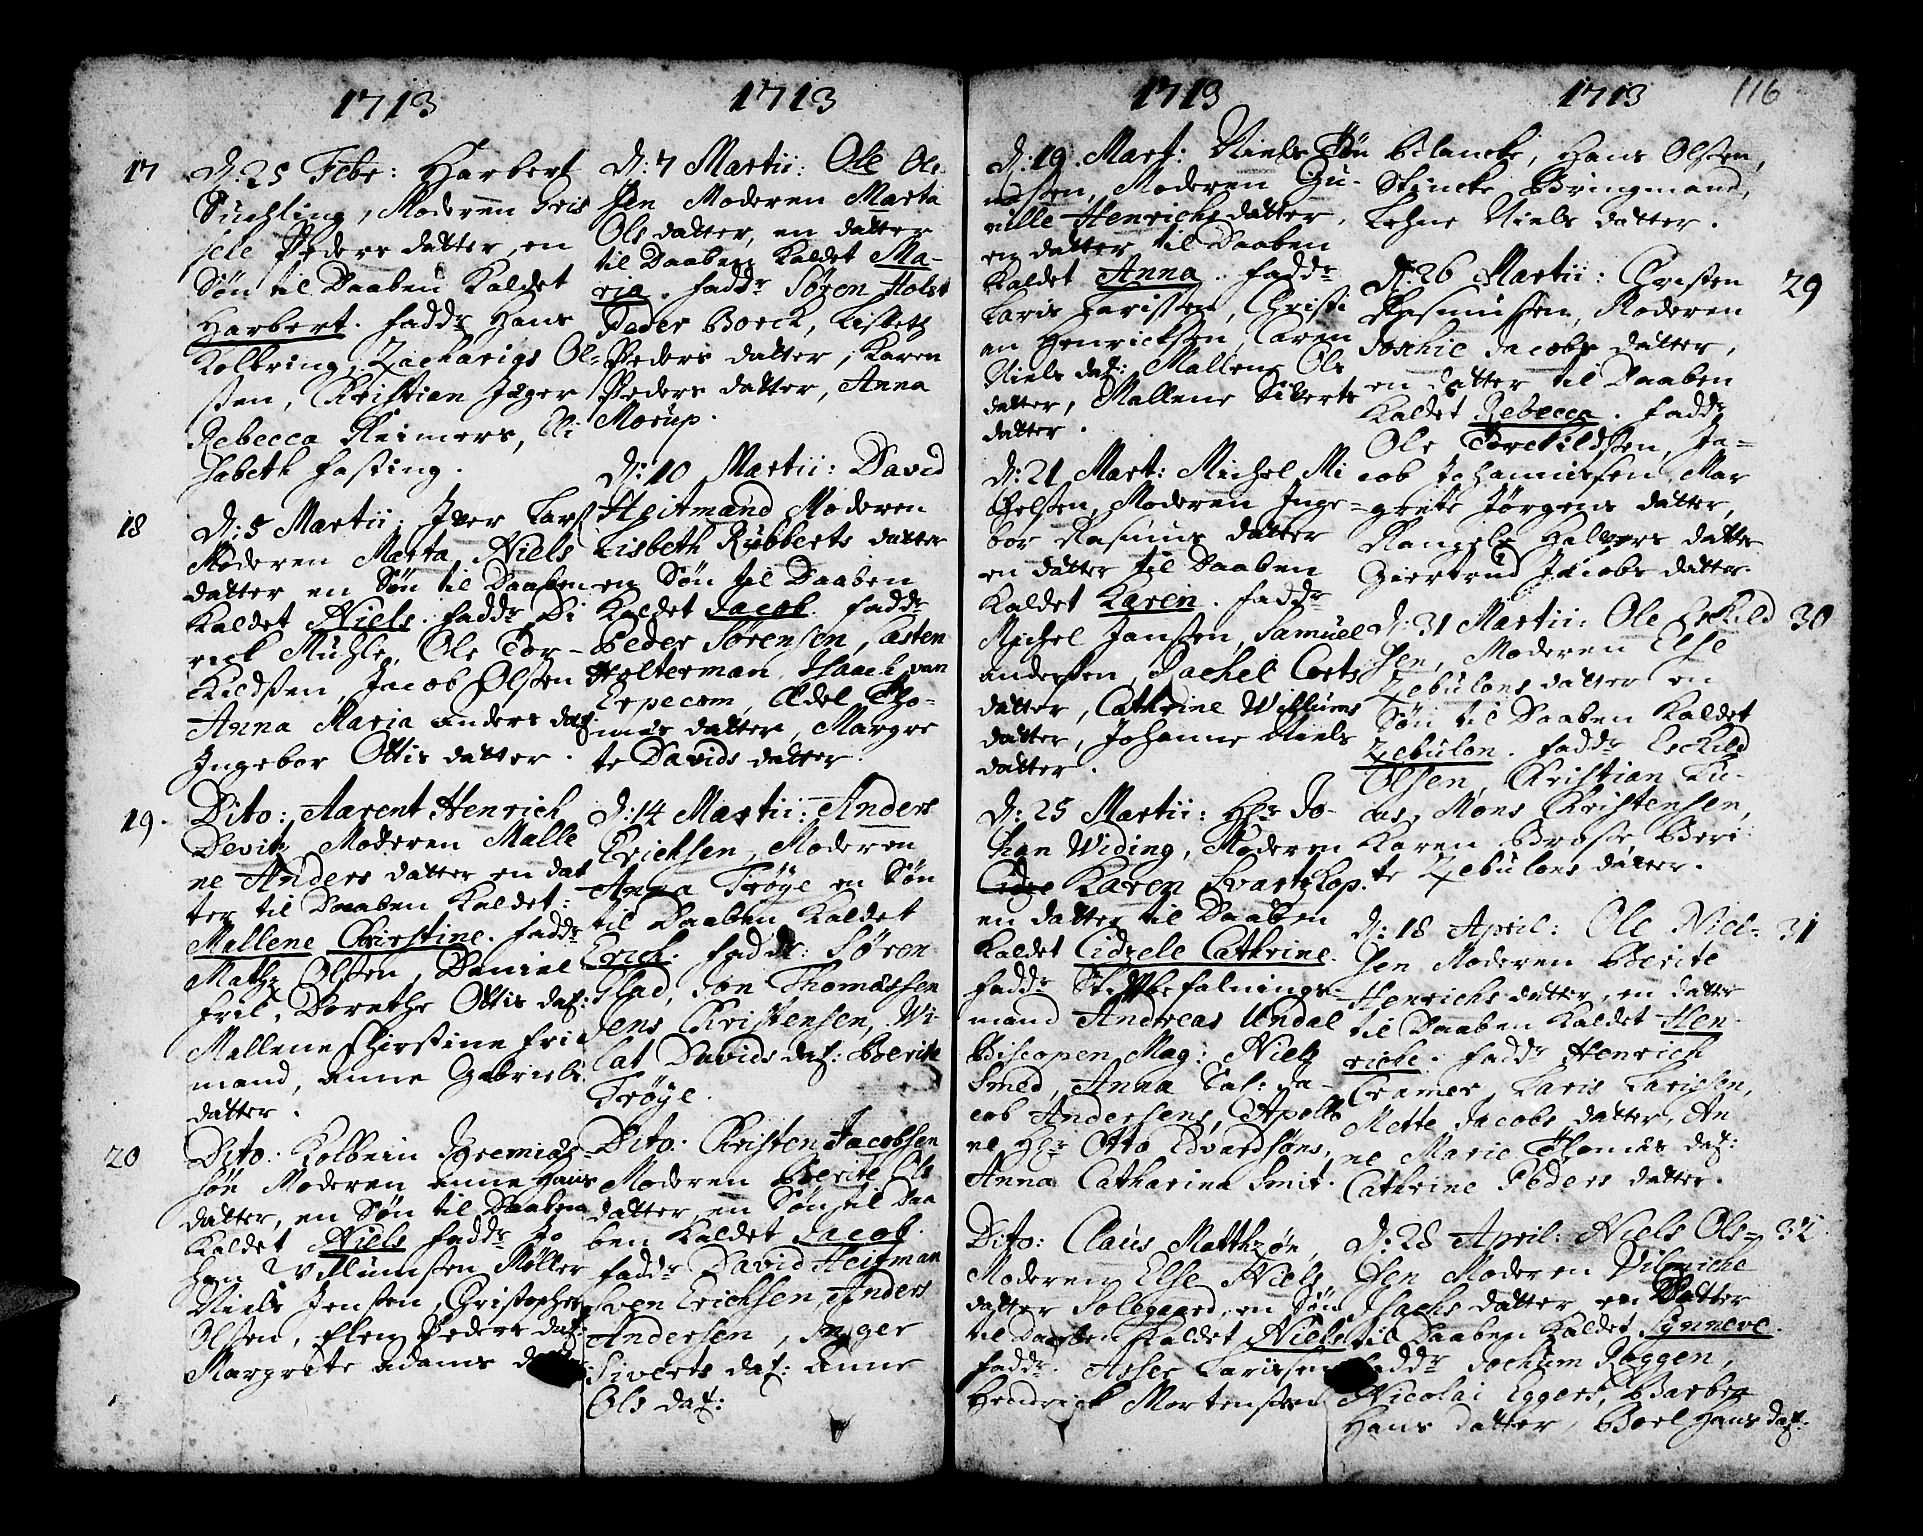 1713
17
D: 25 Febr: Harbert
Suchling, Moderen Gris
sele Peders datter, en
Søn til Daaben Kaldet
Harbert. fadd: Hans
Kolbring, Zacharias Ol-
sen, Christian Jæger
Rebecca Reimers, Eli
sabeth fasting.
18
D: 5 Martii: Iver Lars
Moderen Marta Niels
datter en Søn til Daaben
Kaldet Niels. fadd: Di
rick Mühle, Ole Tor-
Kildsen, Jacob Olsen
Anna Maria Anders dat:
Ingebor Ottis datter.
19.
Dito: Aarent Henrich
Devitz Moderen Malle
ne Anders datter en dat
ter til Daaben Kaldet:
Mallene Christine. fadd:
Mathz Olsen, Daniel
friis, Dorethe Ottis dat:
Mallene Christine frie
mand, Anne Gabriels
datter.
20
Dito: Kolbein Jeremias
søn Moderen Anne Hans
datter, en Søn til Daaben
Kaldet Niels fadd: Jo
han Villumsen Møller
Niels Jensen, Christopher
Olsen, Elen Peders dat:
Margrete Adams
1713
D: 7 Martii: Ole Ol-
sen Moderen Marta
Ols datter, en datter
til Daaben Kaldet Ma-
ria. fadd: Søren Holst
Peder Borck, Lisbeth
Peders datter, Karen
Peders datter, Anna
Morup.
D: 10 Martii: David
Heitmand Moderen
Lisbeth Rubberts datter
en Søn til Daaben
Kaldet Jacob. fadd:
Peder Sørensen, Casten
Holterman, Isaach van
Erpecom, Edel Tho-
mas datter, Margre
te Davids datter.
D: 14 Martii: Anders
Erichsen, Moderen
Anna Trøye en Søn
til Daaben Kaldet
Erich. fadd: Søren
Glad, Jon Thomassen
Jens Christensen, Wi-
lat Davids dat: Berite
Trøye.
Dito: Christen Jacobsen
Moderen Berite Ols
datter, en Søn til Daa
ben Kaldet Jacob.
fadd: David Heitman
Sven Erichsen, Anders
Andersen, Inger
Siverts dat: Anne
Ols dat:
1713
D: 19 Mart: Niels
Moderen Gu-
nille Henrichs datter,
en datter til Daaben
Kaldet Anna. fadd:
Laris Larissen, Christi
an Henricksen, Caren
Niels dat: Mallene Ols
datter, Mallene Siverts
datter.
D: 21 Mart: Michel Mi
chelsen, Moderen Inge-
bor Rasmus datter
en datter til Daaben
Kaldet Karen. fadd:
Michel Jansen, Samuel
andersen, Rachel Corts
datter, Cathrine Willums
datter, Johanne Niels
datter.
D: 25 Martii: Hr: Jo-
han Widing, Moderen
Karen Svartskop.
en datter til Daaben
Kaldet Cidzele Cathrine.
fadd: Stiftbefalnings-
mand Andreas Undal
Biscopen Mag: Nielz
Smed, Anna Sal: Ja-
cob Andersens, Apollo
ne Hr: Otto Edvardsøns,
Anna Catharina Smit.
Dito: Claus Matthzøn,
Moderen Else Niels
datter Solgaard, en Søn
til Daaben Kaldet Niels
fadd: Asser Larissen
Hendrick Mortensen
1713
116
Blancke, Hans Olsen,
Stincke Bringmand,
Lehne Niels datter.
29
D: 26 Martii: Christen
Rasmussen, Moderen
Sophie Jacobs datter,
en datter til Daaben
Kaldet Rebecca. fadd:
Ole Torkildsen, Ja-
cob Johannissen, Mar
grete Jørgens datter,
Rangele Halvors datter
Giertrud Jacobs datter.
30
D: 31 Martii: Ole Eskild
sen, Moderen Else
Zebulons datter en
Søn til Daaben Kaldet
Zebulon. fadd: Eeskild
Olsen, Christian Lu-
cas, Mons Christensen,
Karen Brose Beri
te Zebulons datter.
31
D: 18 April: Ole Niel-
sen Moderen Berite
Henrichs datter, en datter
til Daaben Kaldet Hen-
riche. fadd: Henrich
Cramer, Laris Larissen,
Mette Jacobs datter, An
ne Marie Thomas dat:
Cathrine Peders datter.
32
D: 28 April: Niels Ols-
sen Moderen Vibriche
Isachs datter en Datter
til Daaben Kaldet Synneve.
fadd: Jochum Roggen,
Nicolai Eggers, Barbra
Hans datter, Boel Hans dat: